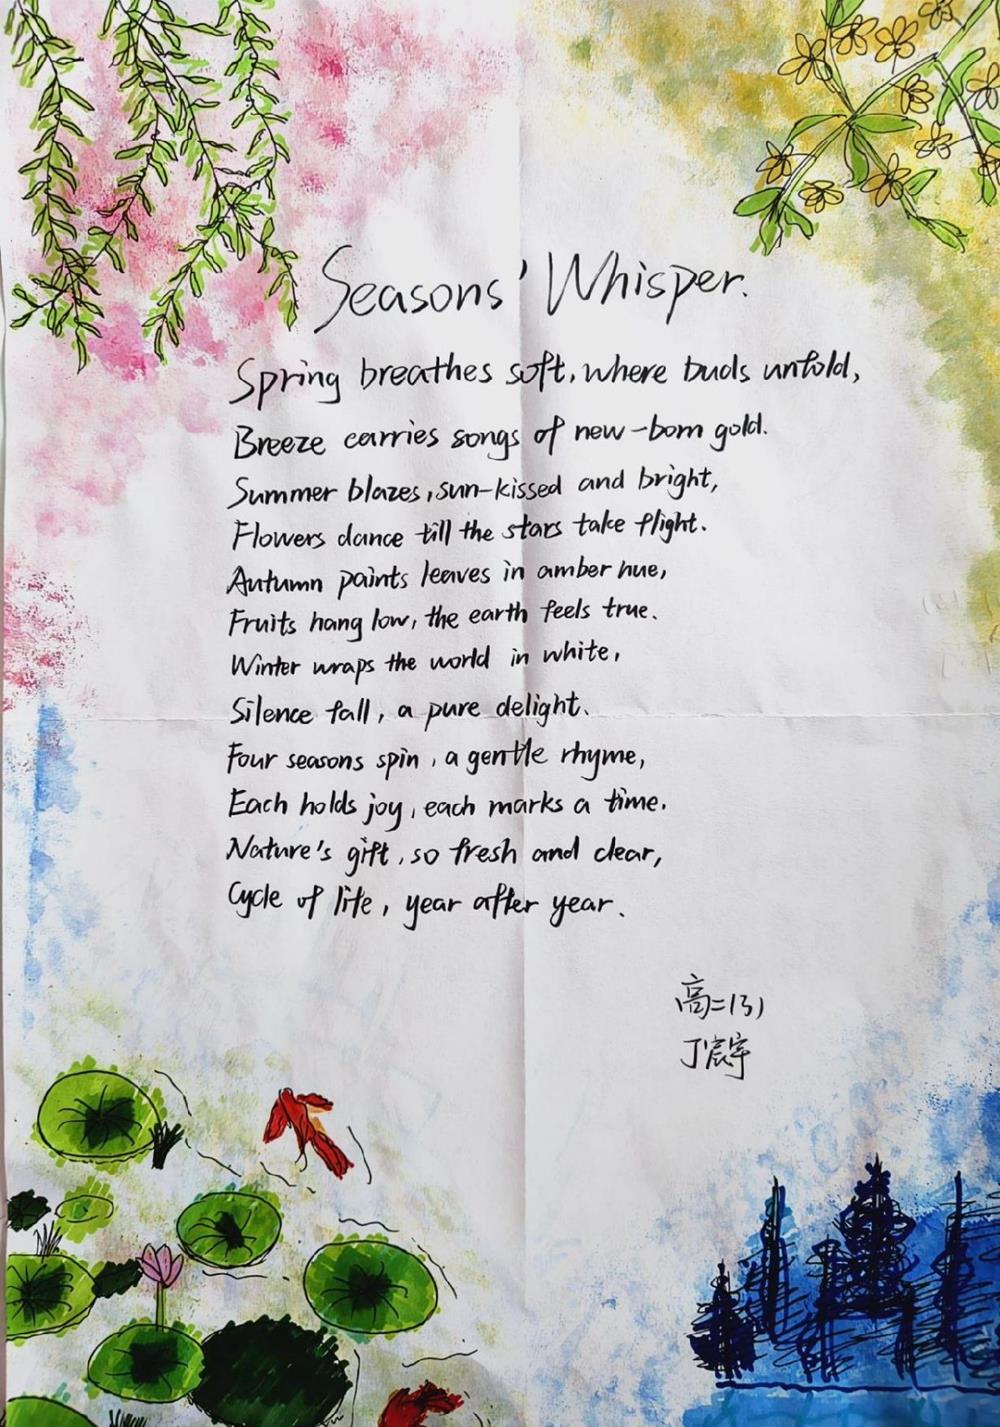 Seasons' Whisper.
Spring breathes soft, where buds unfold,
Breeze carries songs of new-born gold.
Summer blazes, sun-kissed and bright,
Flowers dance till the stars take flight.
Autumn paints leaves in amber hue,
Fruits hang low, the earth feels true.
Winter wraps the world in white,
Silence fall, a pure delight.
Four seasons spin, a gentle rhyme,
Each holds joy, each marks a time.
Nature's gift, so fresh and clear,
Cycle of life, year after year.
高二(3)
丁宸宇